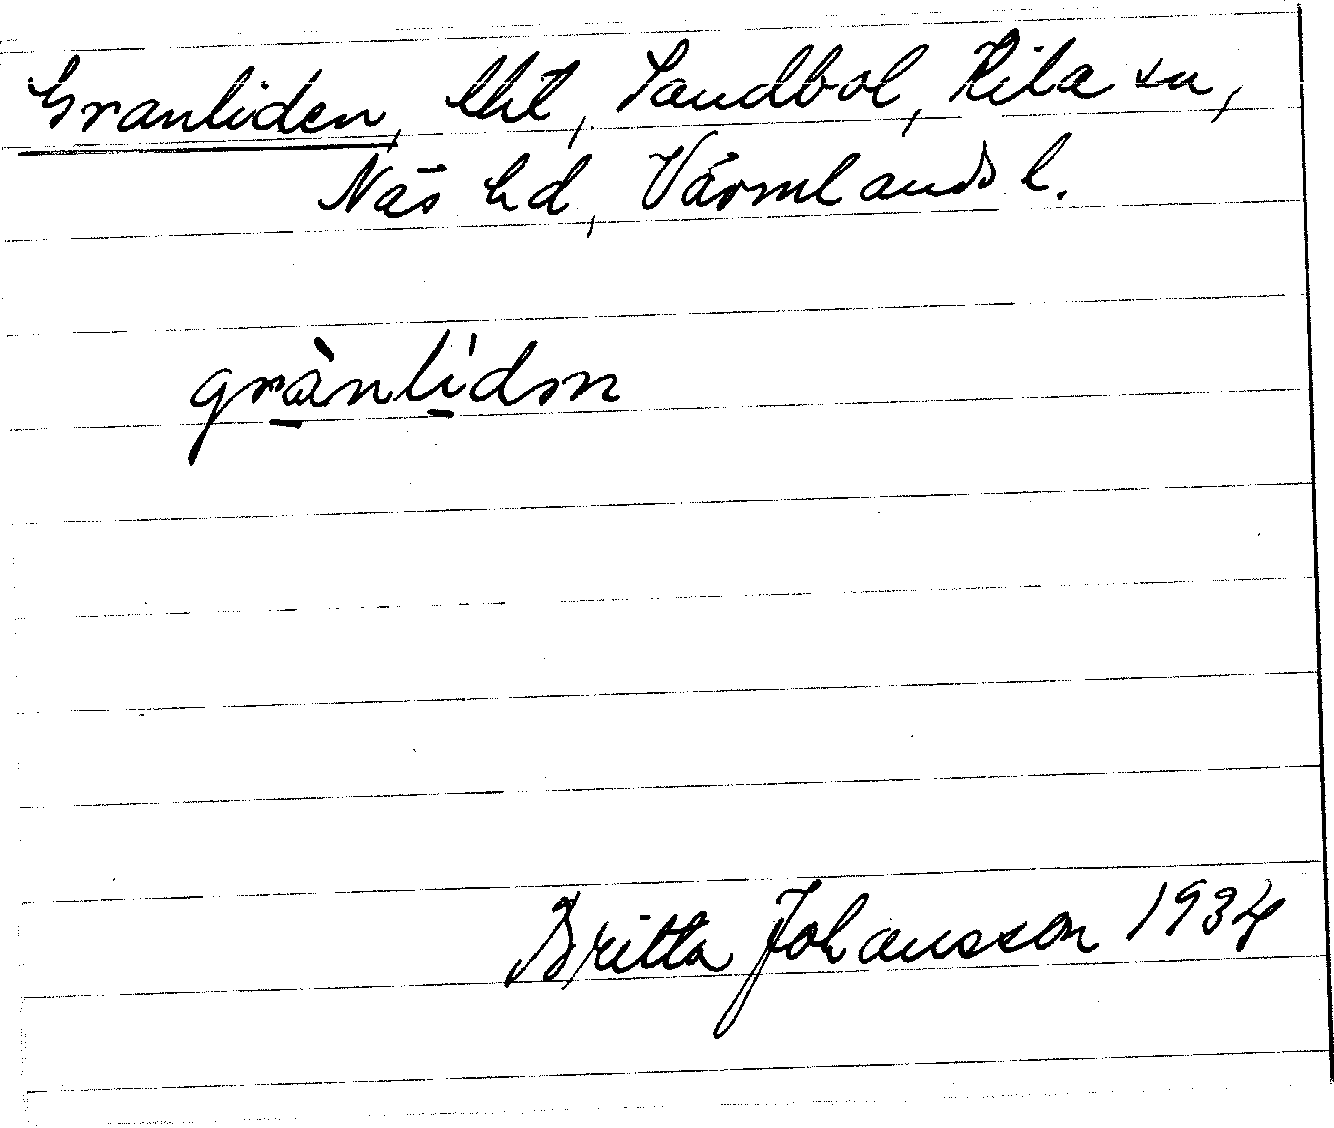 Granliden, lht, Sandbol, Kila sn,
Näs hd, Värmlands l.
grànlìdn
Britta Johansson 1934